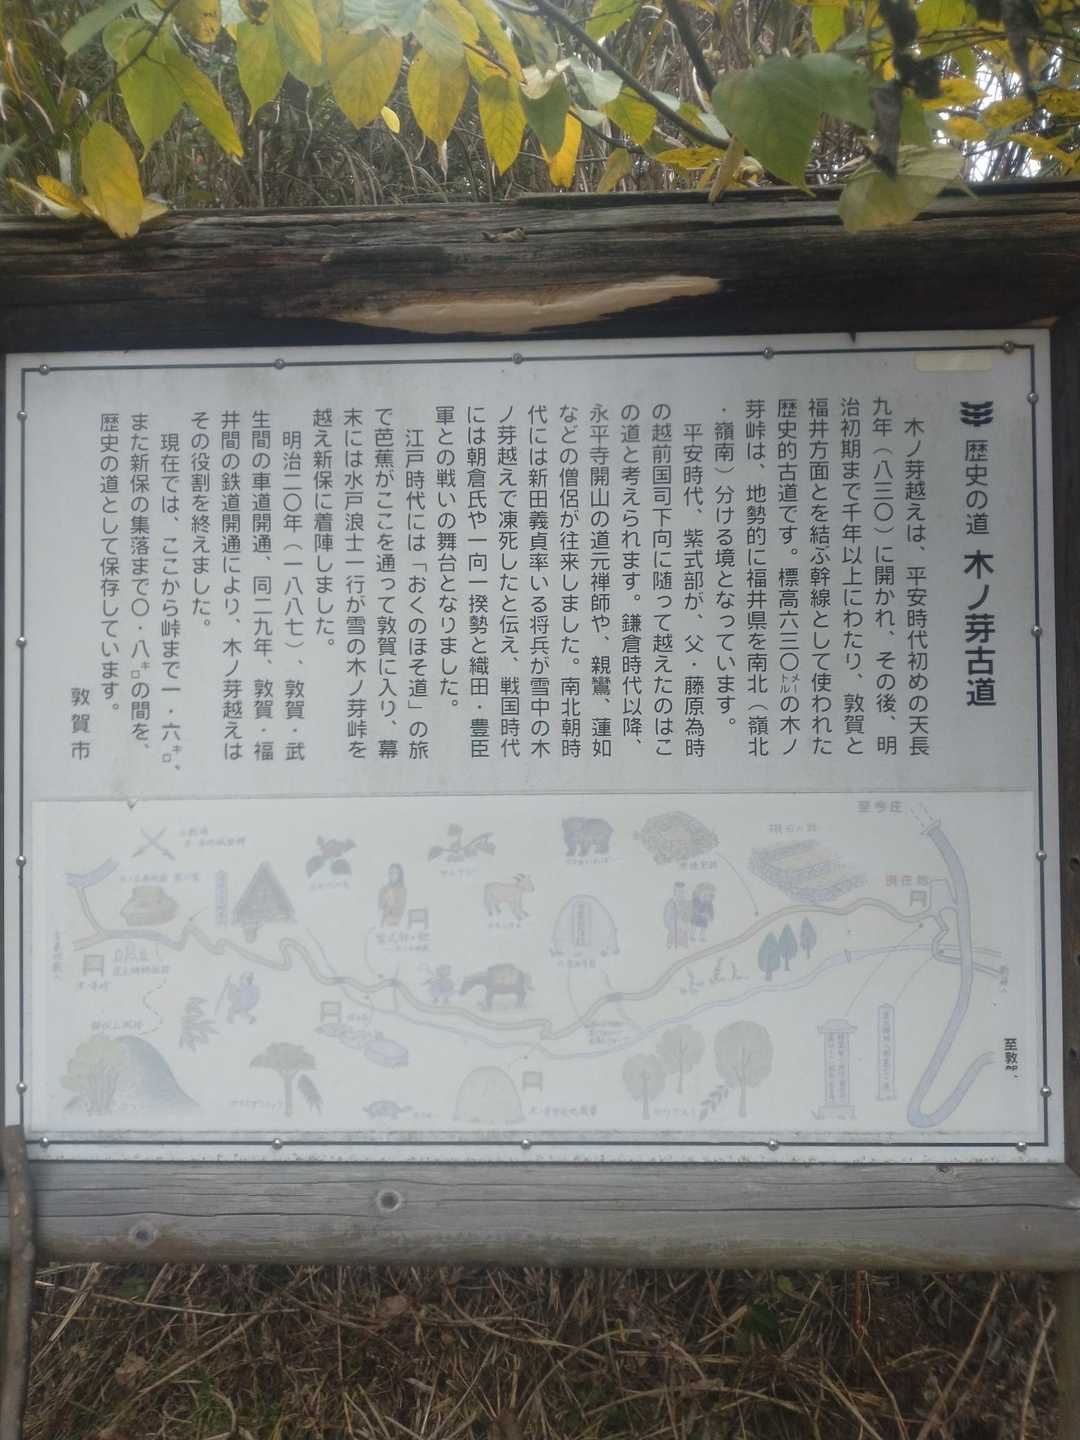 歴史の道 木ノ芽古道
木ノ芽越えは、平安時代初めの天長
九年（八三〇）に開かれ、その後、明
治初期まで千年以上にわたり、敦賀と
福井方面とを結ぶ幹線として使われた
歴史的古道です。標高六三〇メートルの木ノ
芽峠は、地勢的に福井県を南北（嶺北
・嶺南）分ける境となっています。
平安時代、紫式部が、父・藤原為時
の越前国司下向に随って越えたのはこ
の道と考えられます。鎌倉時代以降、
永平寺開山の道元禅師や、親鸞、蓮如
などの僧侶が往来しました。南北朝時
代には新田義貞率いる将兵が雪中の木
ノ芽越えで凍死したと伝え、戦国時代
には朝倉氏や一向一揆勢と織田・豊臣
軍との戦いの舞台となりました。
江戸時代には「おくのほそ道」の旅
で芭蕉がここを通って敦賀に入り、幕
末には水戸浪士一行が雪の木ノ芽峠を
越え新保に着陣しました。
明治二〇年（一八八七）、敦賀・武
生間の車道開通、同二九年、敦賀・福
井間の鉄道開通により、木ノ芽越えは
その役割を終えました。
現在では、ここから峠まで一・六キロ、
また新保の集落まで〇・八キロの間を、
歴史の道として保存しています。
敦賀市
至今庄
現在地
至敦賀